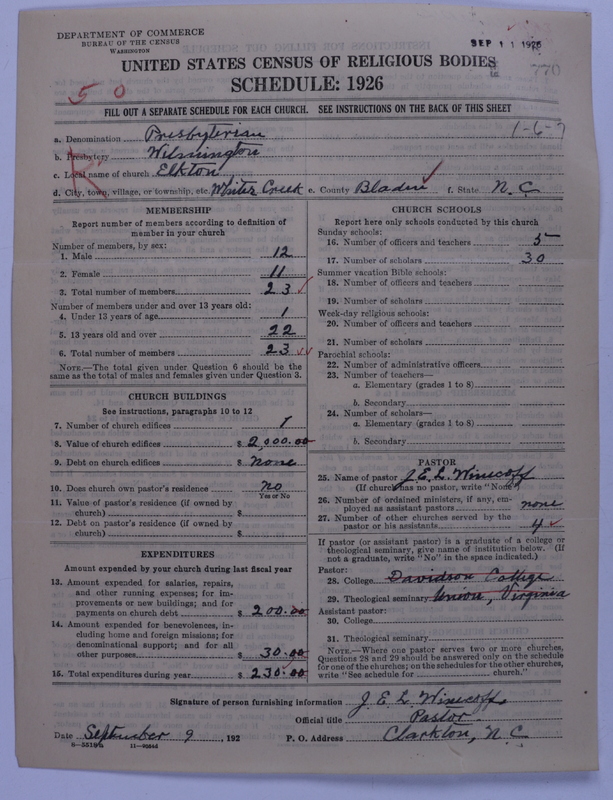 DEPARTMENT OF COMMERCE
BUREAU OF THE CENSUS
WASHINGTON
SEP 11 1926
770
UNITED STATES CENSUS OF RELIGIOUS BODIES
SCHEDULE: 1926
50
FILL OUT A SEPARATE SCHEDULE FOR EACH CHURCH. SEE INSTRUCTIONS ON THE BACK OF THIS SHEET
a. Denomination Presbyterian
1-6-7
b. Presbytery Wilmington
c. Local name of church Elkton
d. City, town, village, or township, etc. White's Creek e. County Bladen f. State N. C.
MEMBERSHIP
Report number of members according to definition of member in your church
Number of members, by sex:
1. Male 12
2. Female 11
3. Total number of members 23
Number of members under and over 13 years old:
4. Under 13 years of age 1
5. 13 years old and over 22
6. Total number of members 23
NOTE.—The total given under Question 6 should be the
same as the total of males and females given under Question 3.
CHURCH BUILDINGS
See instructions, paragraphs 10 to 12
7. Number of church edifices 1
8. Value of church edifices $ 2,000.00
9. Debt on church edifices $ none
10. Does church own pastor's residence no
Yes or No
11. Value of pastor's residence (if owned by
church) $
12. Debt on pastor's residence (if owned by
church) $
EXPENDITURES
Amount expended by your church during last fiscal year
13. Amount expended for salaries, repairs,
and other running expenses; for im-
provements or new buildings; and for
payments on church debt $ 200.00
14. Amount expended for benevolences, in-
cluding home and foreign missions; for
denominational support; and for all
other purposes $ 30.00
15. Total expenditures during year $ 230.00
CHURCH SCHOOLS
Report here only schools conducted by this church
Sunday schools:
16. Number of officers and teachers 5
17. Number of scholars 30
Summer vacation Bible schools:
18. Number of officers and teachers
19. Number of scholars
Week-day religious schools:
20. Number of officers and teachers
21. Number of scholars
Parochial schools:
22. Number of administrative officers
23. Number of teachers—
a. Elementary (grades 1 to 8)
b. Secondary
24. Number of scholars—
a. Elementary (grades 1 to 8)
b. Secondary
PASTOR
25. Name of pastor J. E. L. Winecoff
(If church has no pastor, write "None")
26. Number of ordained ministers, if any, em-
ployed as assistant pastors none
27. Number of other churches served by the
pastor or his assistants 4
If pastor (or assistant pastor) is a graduate of a college or
theological seminary, give name of institution below. (If
not a graduate, write "No" in the space indicated.)
Pastor:
28. College Davidson College
29. Theological seminary Union, Virginia
Assistant pastor:
30. College
31. Theological seminary
NOTE.—Where one pastor serves two or more churches,
Questions 28 and 29 should be answered only on the schedule
for one of the churches; on the schedules for the other churches,
write "See schedule for church."
Signature of person furnishing information J. E. L. Winecoff
Official title Pastor
Date September 9, 192 P. O. Address Clarkton, N. C.
8-5518a 11-9264d